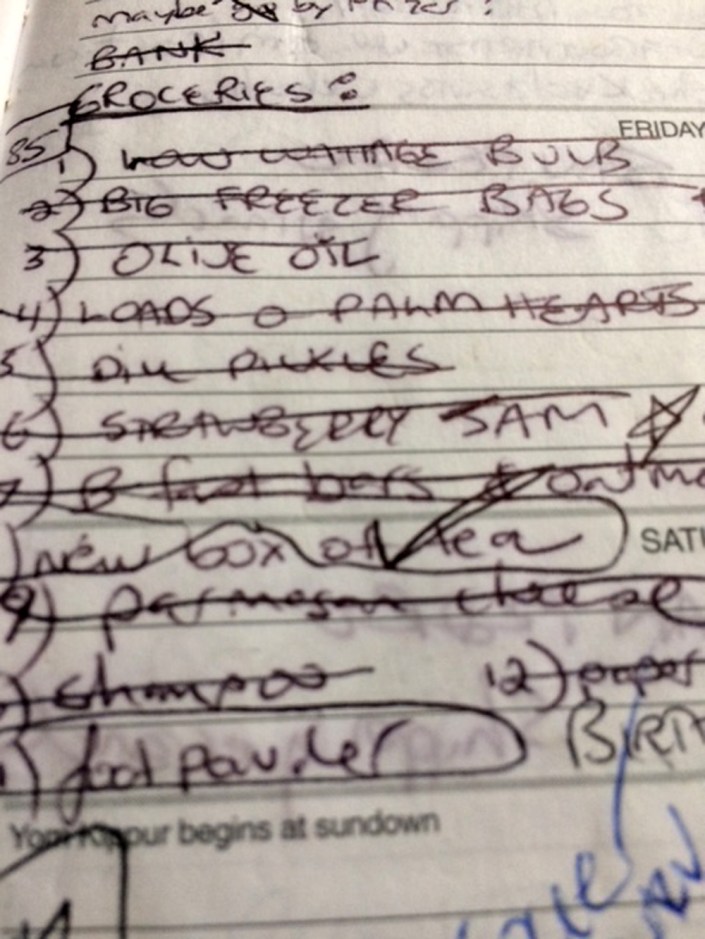 maybe by
BANK
GROCERIES:
85
FRIDAY
1) LOW WATTAGE BULB
2) BIG FREEZER BAGS
3) OLIVE OIL
4) LOADS O PALM HEARTS
5) DILL PICKLES
6) STRAWBERRY JAM
7) B fast bars
) new box of tea
SAT
9) parmesan cheese
) shampoo 12) paper
) foot powder
Yom Kippur begins at sundown